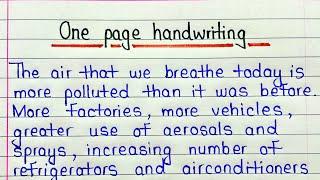 One page handwriting
The air that we breathe today is
more polluted than it was before.
More factories, more vehicles,
greater use of aerosols and
sprays, increasing number of
refrigerators and airconditioners